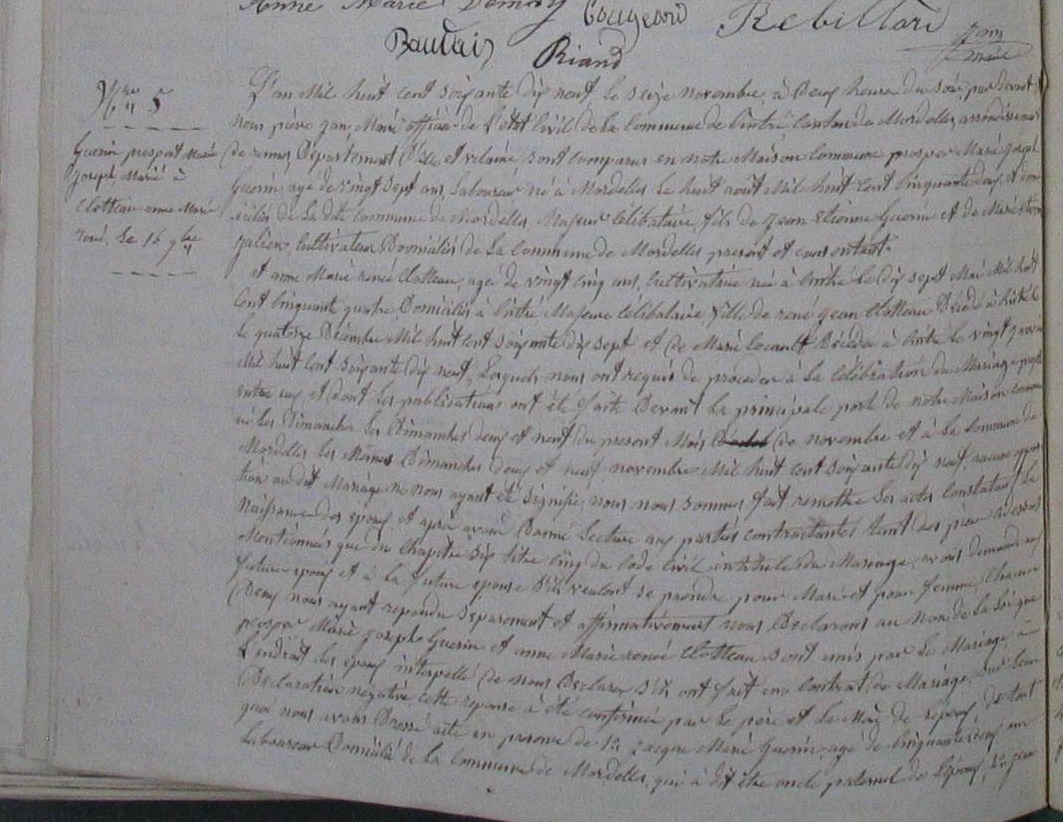 Anne Marie Demay Cougeard Rebillard
Baudais Riand Jan
maire
N° 5
Guerin prosper Marie
Joseph, Marié à
Clotteau anne Marie
rené, Le 16 9bre
L'an Mil huit cent soixante dix neuf le seize novembre, à Deux heures du soir, par devant
nous pierre Jan, Maire officier de L'etat Civil de la Commune de Cintré Canton de Mordelles, arrondissement
de rennes Departement D'ille et vilaine sont comparus en notre Maison Commune prosper Marie Joseph
Guerin, agé de vingt sept ans, Laboureur né à Mordelles Le huit aout Mil huit cent Cinquante deux, et domi
cilié de La dite Commune de Mordelles, Majeur Célibataire, fils de Jean Etienne Guerin et de Marie
Julien, Cultivateurs Domiciliés de La Commune de Mordelles present et consentant.
et anne Marie renée Clotteau, agée de vingt cinq ans, Cultivatrice née à Cintré Le dix sept Mai Mil huit
Cent Cinquante quatre Domiciliée à Cintré Majeure Célibataire fille de rené Jean Clotteau Décédé à Cintré
Le quatorze Décembre Mil huit Cent soixante dix sept et de Marie Decédée à Cintré Le vingt
Mil huit Cent soixante dix neuf, Lesquels nous ont requis de procéder à La Célébration du Mariage projeté
entre eux et dont Les publications ont été faite Devant La principale porte de notre Maison Commune
Les Dimanches Les Dimanches deux et neuf du present Mois de novembre et à La Commune de
Mordelles Les Mêmes Dimanches deux et neuf novembre Mil huit Cent soixante dix neuf, aucune oppos
ition au dit Mariage ne nous ayant été signifiée, nous nous sommes fait remettre Les actes Constatant La
Naissance des époux et après avoir Donné Lecture aux parties contractantes tant des pièces cidessus
Mentionnées que du Chapitre six titre Cinq du Code Civil intitulé du Mariage, avons demandé aux
future epoux et à La future epouse S'ils veulent se prendre pour Mari et pour femme, Chacun
Deux nous ayant repondu separement et affirmativement nous Declarons au Nom de La Loi que
prosper Marie Joseph Guerin et anne Marie renée Clotteau sont unis par Le Mariage, à
L'endroit des époux interpellé de nous Declarer S'ils ont fait un Contrat de Mariage, sur Leur
Declaration négative cette reponse à été confirmée par Le père et La Mère de L'epoux, de tout
quoi nous avons Dressé acte en presence de 1° Jacque Marie Guerin, agé de Cinquante Deux an
Laboureur Domicilié de La Commune de Mordelles, qui à dit être oncle paternel de L'epoux,